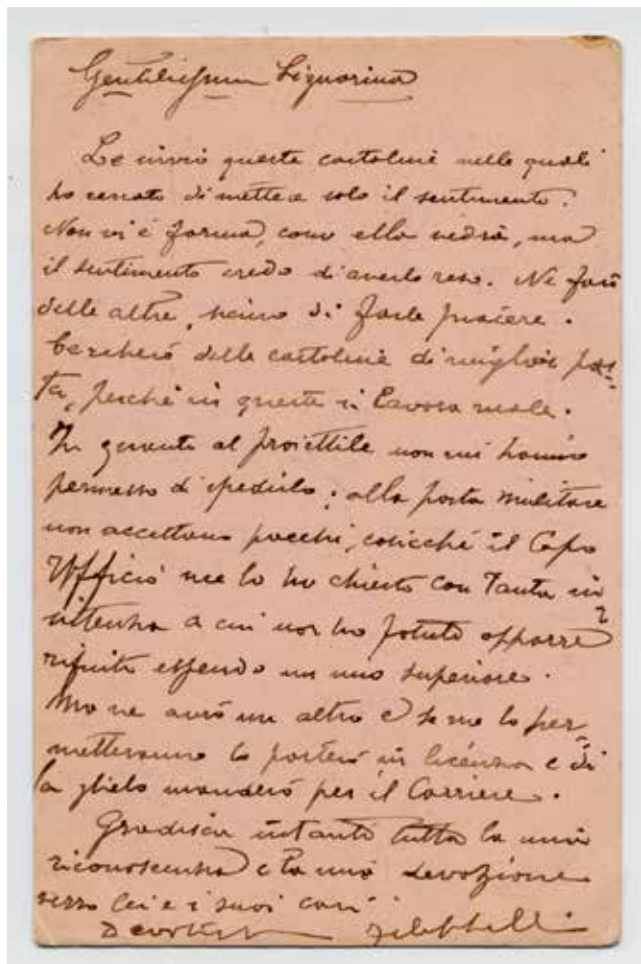 Gentilissima Signorina
Le invio queste cartoline nelle quali
ho cercato di mettere solo il sentimento.
Non vi è forma, come ella vedrà, ma
il sentimento credo di averlo reso. Ne farò
delle altre, sicuro di farle piacere.
Cercherò delle cartoline di miglior pas-
ta, perché in queste si lavora male.
In quanto al proiettile non mi hanno
permesso di spedirlo; alla posta militare
non accettano pacchi, cosicché il Capo
Ufficio me lo ha chiesto con tanta in
sistenza a cui non ho potuto opporre
rifiuto essendo un mio superiore.
Ma ne avrò un altro e se me lo per-
metteranno lo porterò in licenza e di
la glielo manderò per il Corriere.
Gradisca intanto tutta la mia
riconoscenza e la mia devozione
verso lei e i suoi cari.